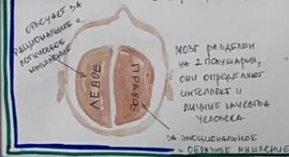 ОТВЕЧАЕТ ЗА
РАЦИОНАЛЬНОЕ И
ЛОГИЧЕСКОЕ
МЫШЛЕНИЕ
ЛЕВОЕ
ПРАВОЕ
МОЗГ РАЗДЕЛЕН
НА 2 ПОЛУШАРИЯ,
ОНИ ОПРЕДЕЛЯЮТ
ИНТЕЛЛЕКТ И
ЛИЧНЫЕ КАЧЕСТВА
ЧЕЛОВЕКА
ЗА ЭМОЦИОНАЛЬНОЕ
И ОБРАЗНОЕ МЫШЛЕНИЕ